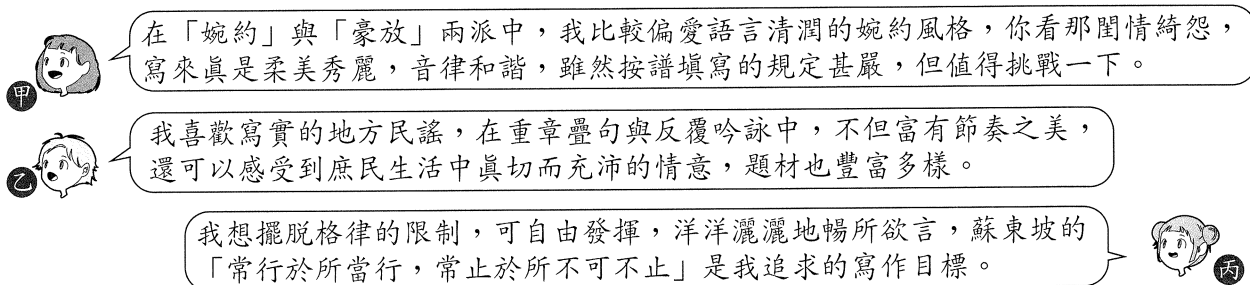 在「婉約」與「豪放」兩派中，我比較偏愛語言清潤的婉約風格，你看那閨情綺怨，
寫來真是柔美秀麗，音律和諧，雖然按譜填寫的規定甚嚴，但值得挑戰一下。
甲
我喜歡寫實的地方民謠，在重章疊句與反覆吟詠中，不但富有節奏之美，
還可以感受到庶民生活中真切而充沛的情意，題材也豐富多樣。
乙
我想擺脫格律的限制，可自由發揮，洋洋灑灑地暢所欲言，蘇東坡的
「常行於所當行，常止於所不可不止」是我追求的寫作目標。
丙